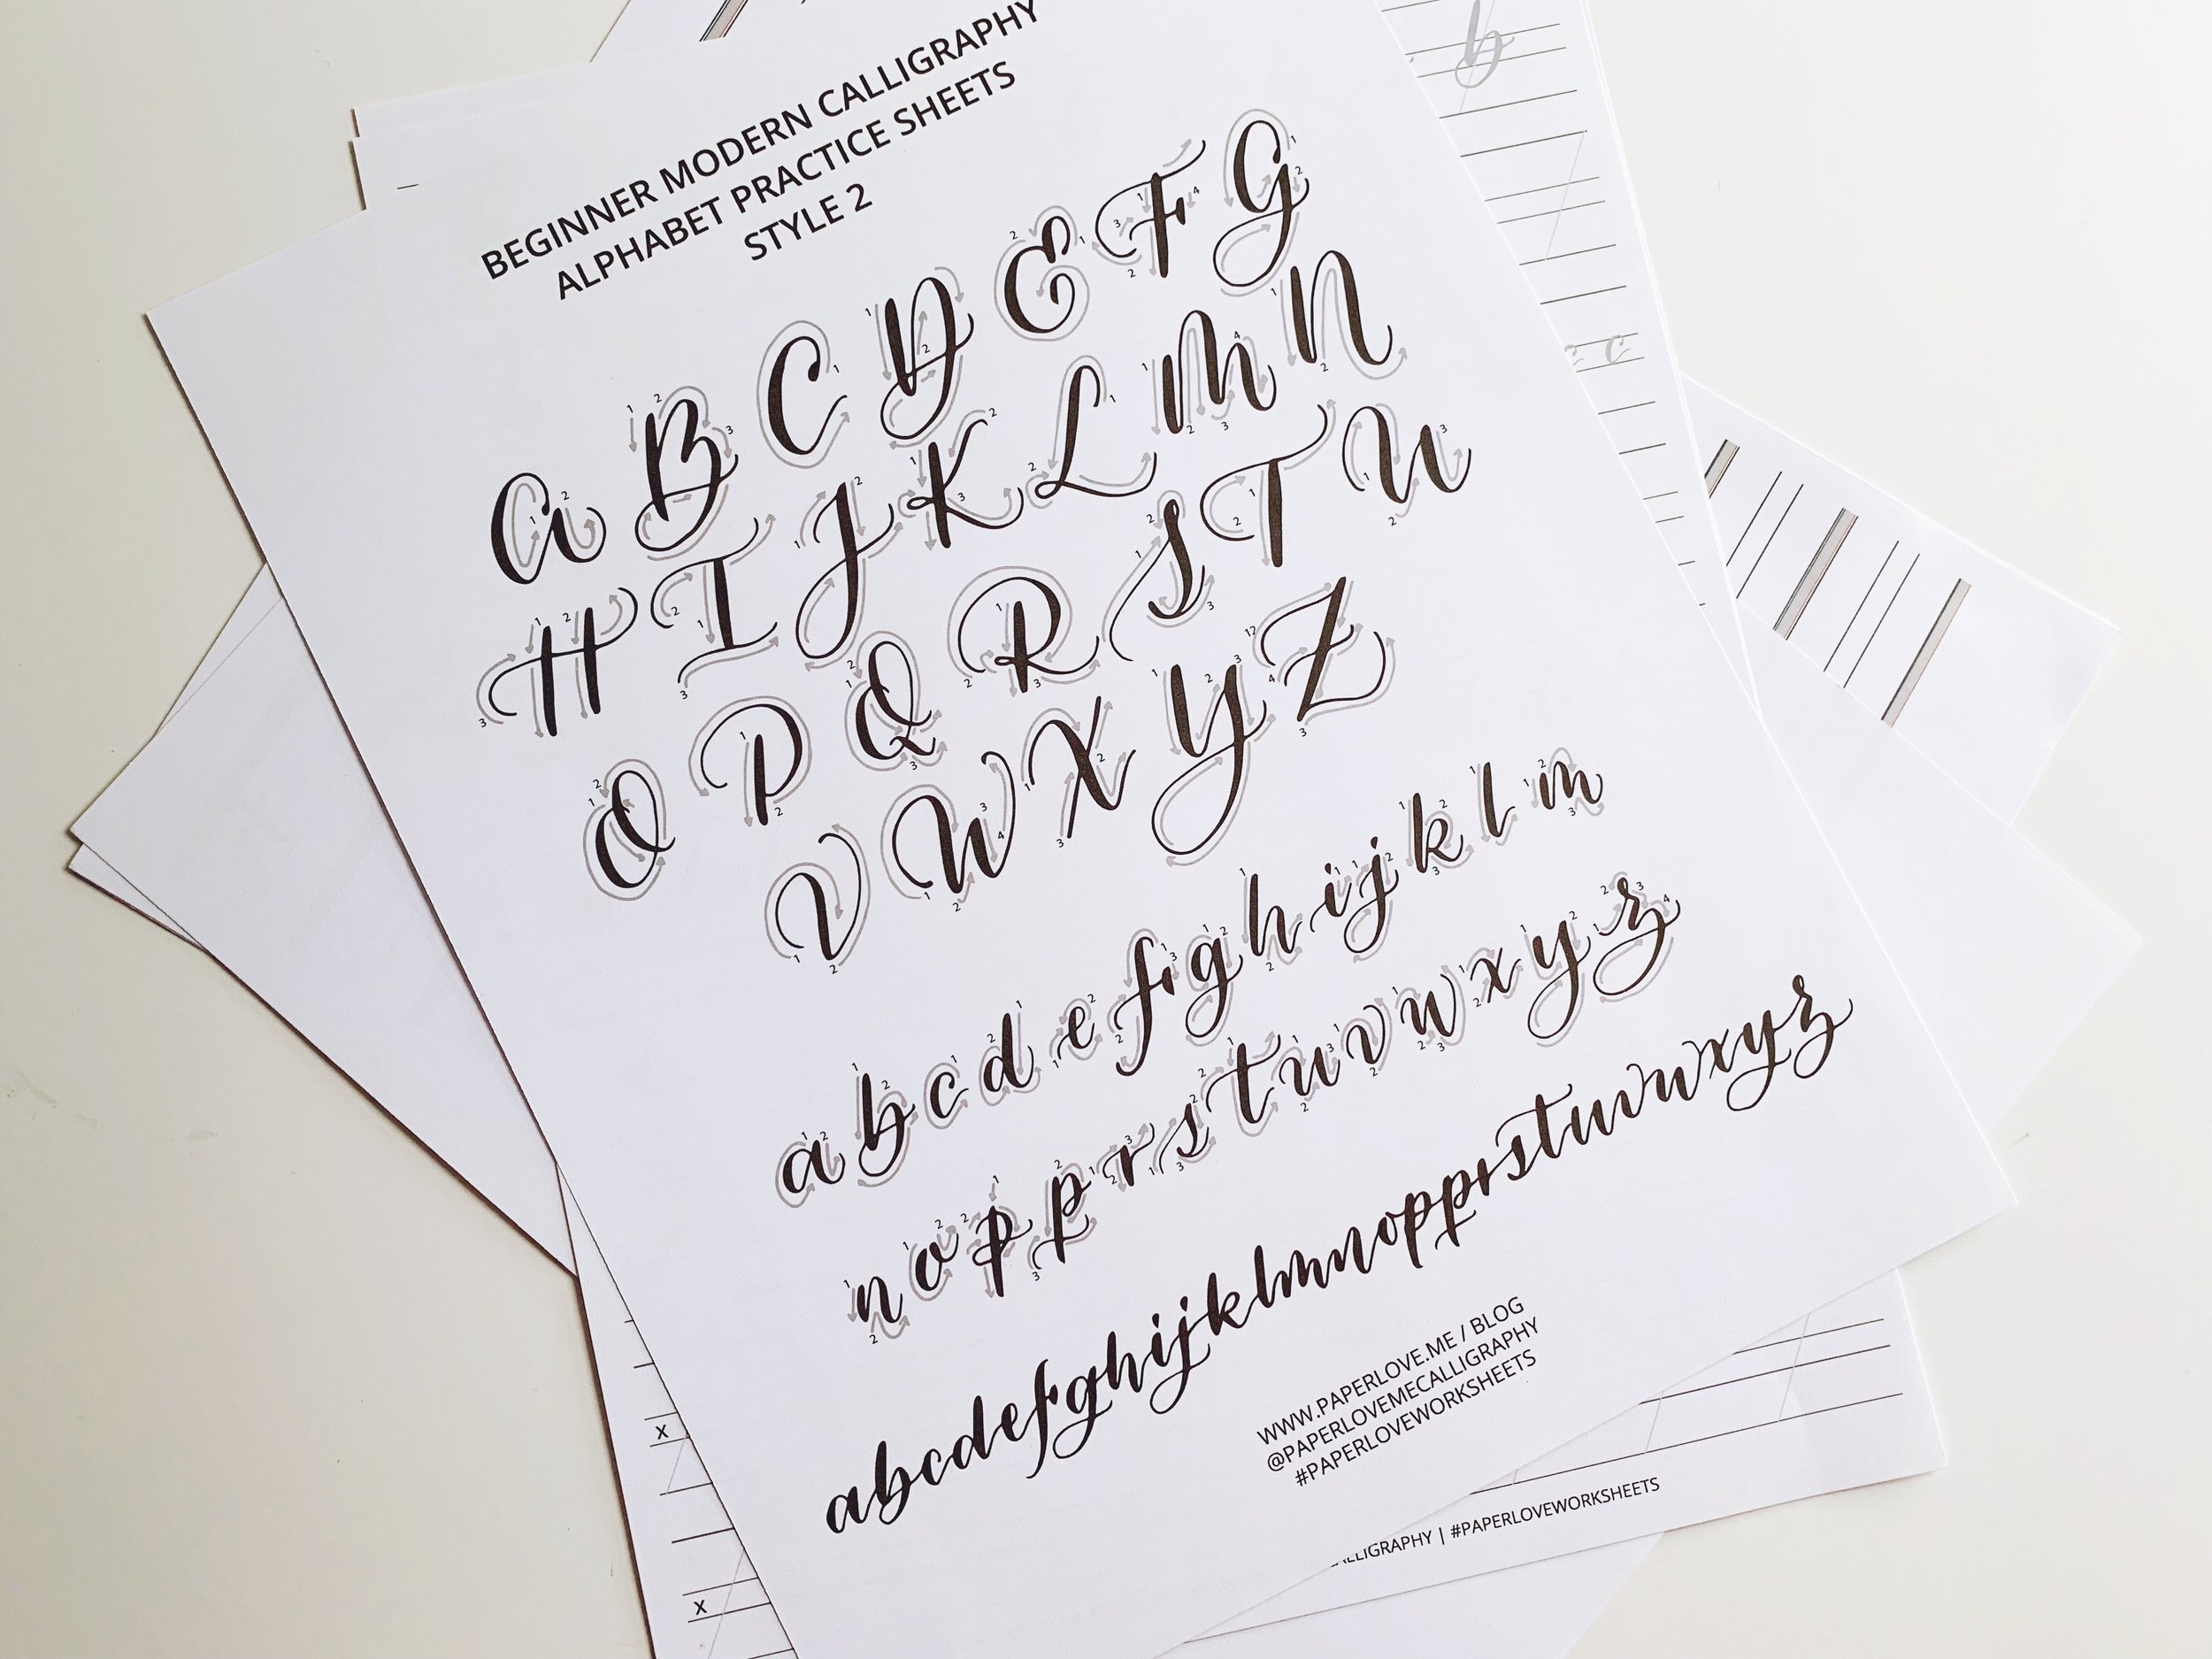 BEGINNER MODERN CALLIGRAPHY
ALPHABET PRACTICE SHEETS
STYLE 2
A B C D E F G
H I J K L M N
O P Q R S T U
V W X Y Z
a b c d e f g h i j k l m
n o p p r s t u v w x y z
abcdefghijklmnopprstuvwxyz
WWW.PAPERLOVE.ME / BLOG
@PAPERLOVEMECALLIGRAPHY
#PAPERLOVEWORKSHEETS
b
c c
x
x
LLIGRAPHY | #PAPERLOVEWORKSHEETS